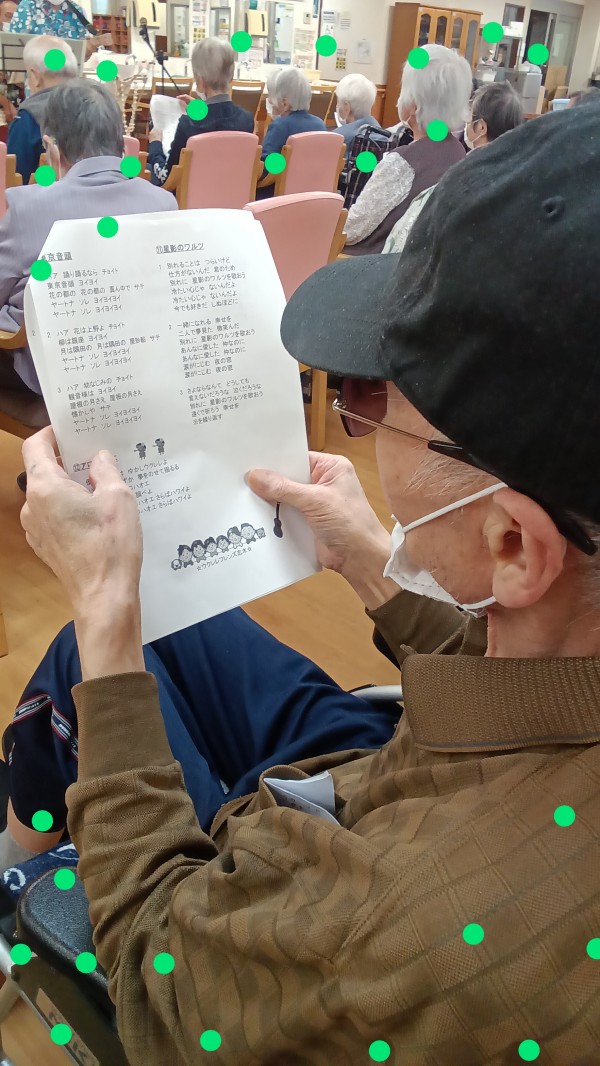 京音頭
ハア 踊り踊るなら チョイト
東京音頭 ヨイヨイ
花の都の 花の都の 真ん中で サテ
ヤートナ ソレ ヨイヨイヨイ
ヤートナ ソレ ヨイヨイヨイ
2 ハア 花は上野よ チョイト
柳は銀座 ヨイヨイ
月は隅田の 月は隅田の 屋形船 サテ
ヤートナ ソレ ヨイヨイヨイ
ヤートナ ソレ ヨイヨイヨイ
3 ハア 幼なじみの チョイト
観音様は ヨイヨイ
屋根の月さえ 屋根の月さえ
懐かしや サテ
ヤートナ ソレ ヨイヨイヨイ
ヤートナ ソレ ヨイヨイヨイ
⑪星影のワルツ
1 別れることは つらいけど
仕方がないんだ 君のため
別れに 星影のワルツを歌おう
冷たい心じゃ ないんだよ
冷たい心じゃ ないんだよ
今でも好きだ しぬほどに
2 一緒になれる 幸せを
二人で夢見た 微笑んだ
別れに 星影のワルツを歌おう
あんなに愛した 仲なのに
あんなに愛した 仲なのに
涙がにじむ 夜の窓
涙がにじむ 夜の窓
3 さよならなんて どうしても
言えないだろうな 泣くだろうな
別れに 星影のワルツを歌おう
遠くで祈ろう 幸せを
ゆかしウクレレよ
夢をのせて揺るる
ハオエ
調べよ
ハオエ さらばハワイよ
ハオエ さらばハワイよ